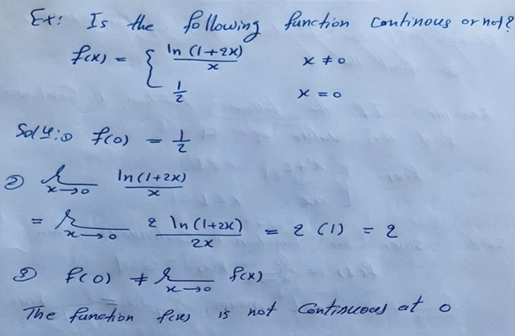 Ex: Is the following function Continous or not?
f(x) = { ln (1+2x) / x x ≠ 0
1/2 x = 0
Solu: ① f(0) = 1/2
② lim x→0 ln(1+2x) / x
= lim x→0 2 ln(1+2x) / 2x = 2 (1) = 2
③ f(0) ≠ lim x→0 f(x)
The function f(x) is not Continuous at 0